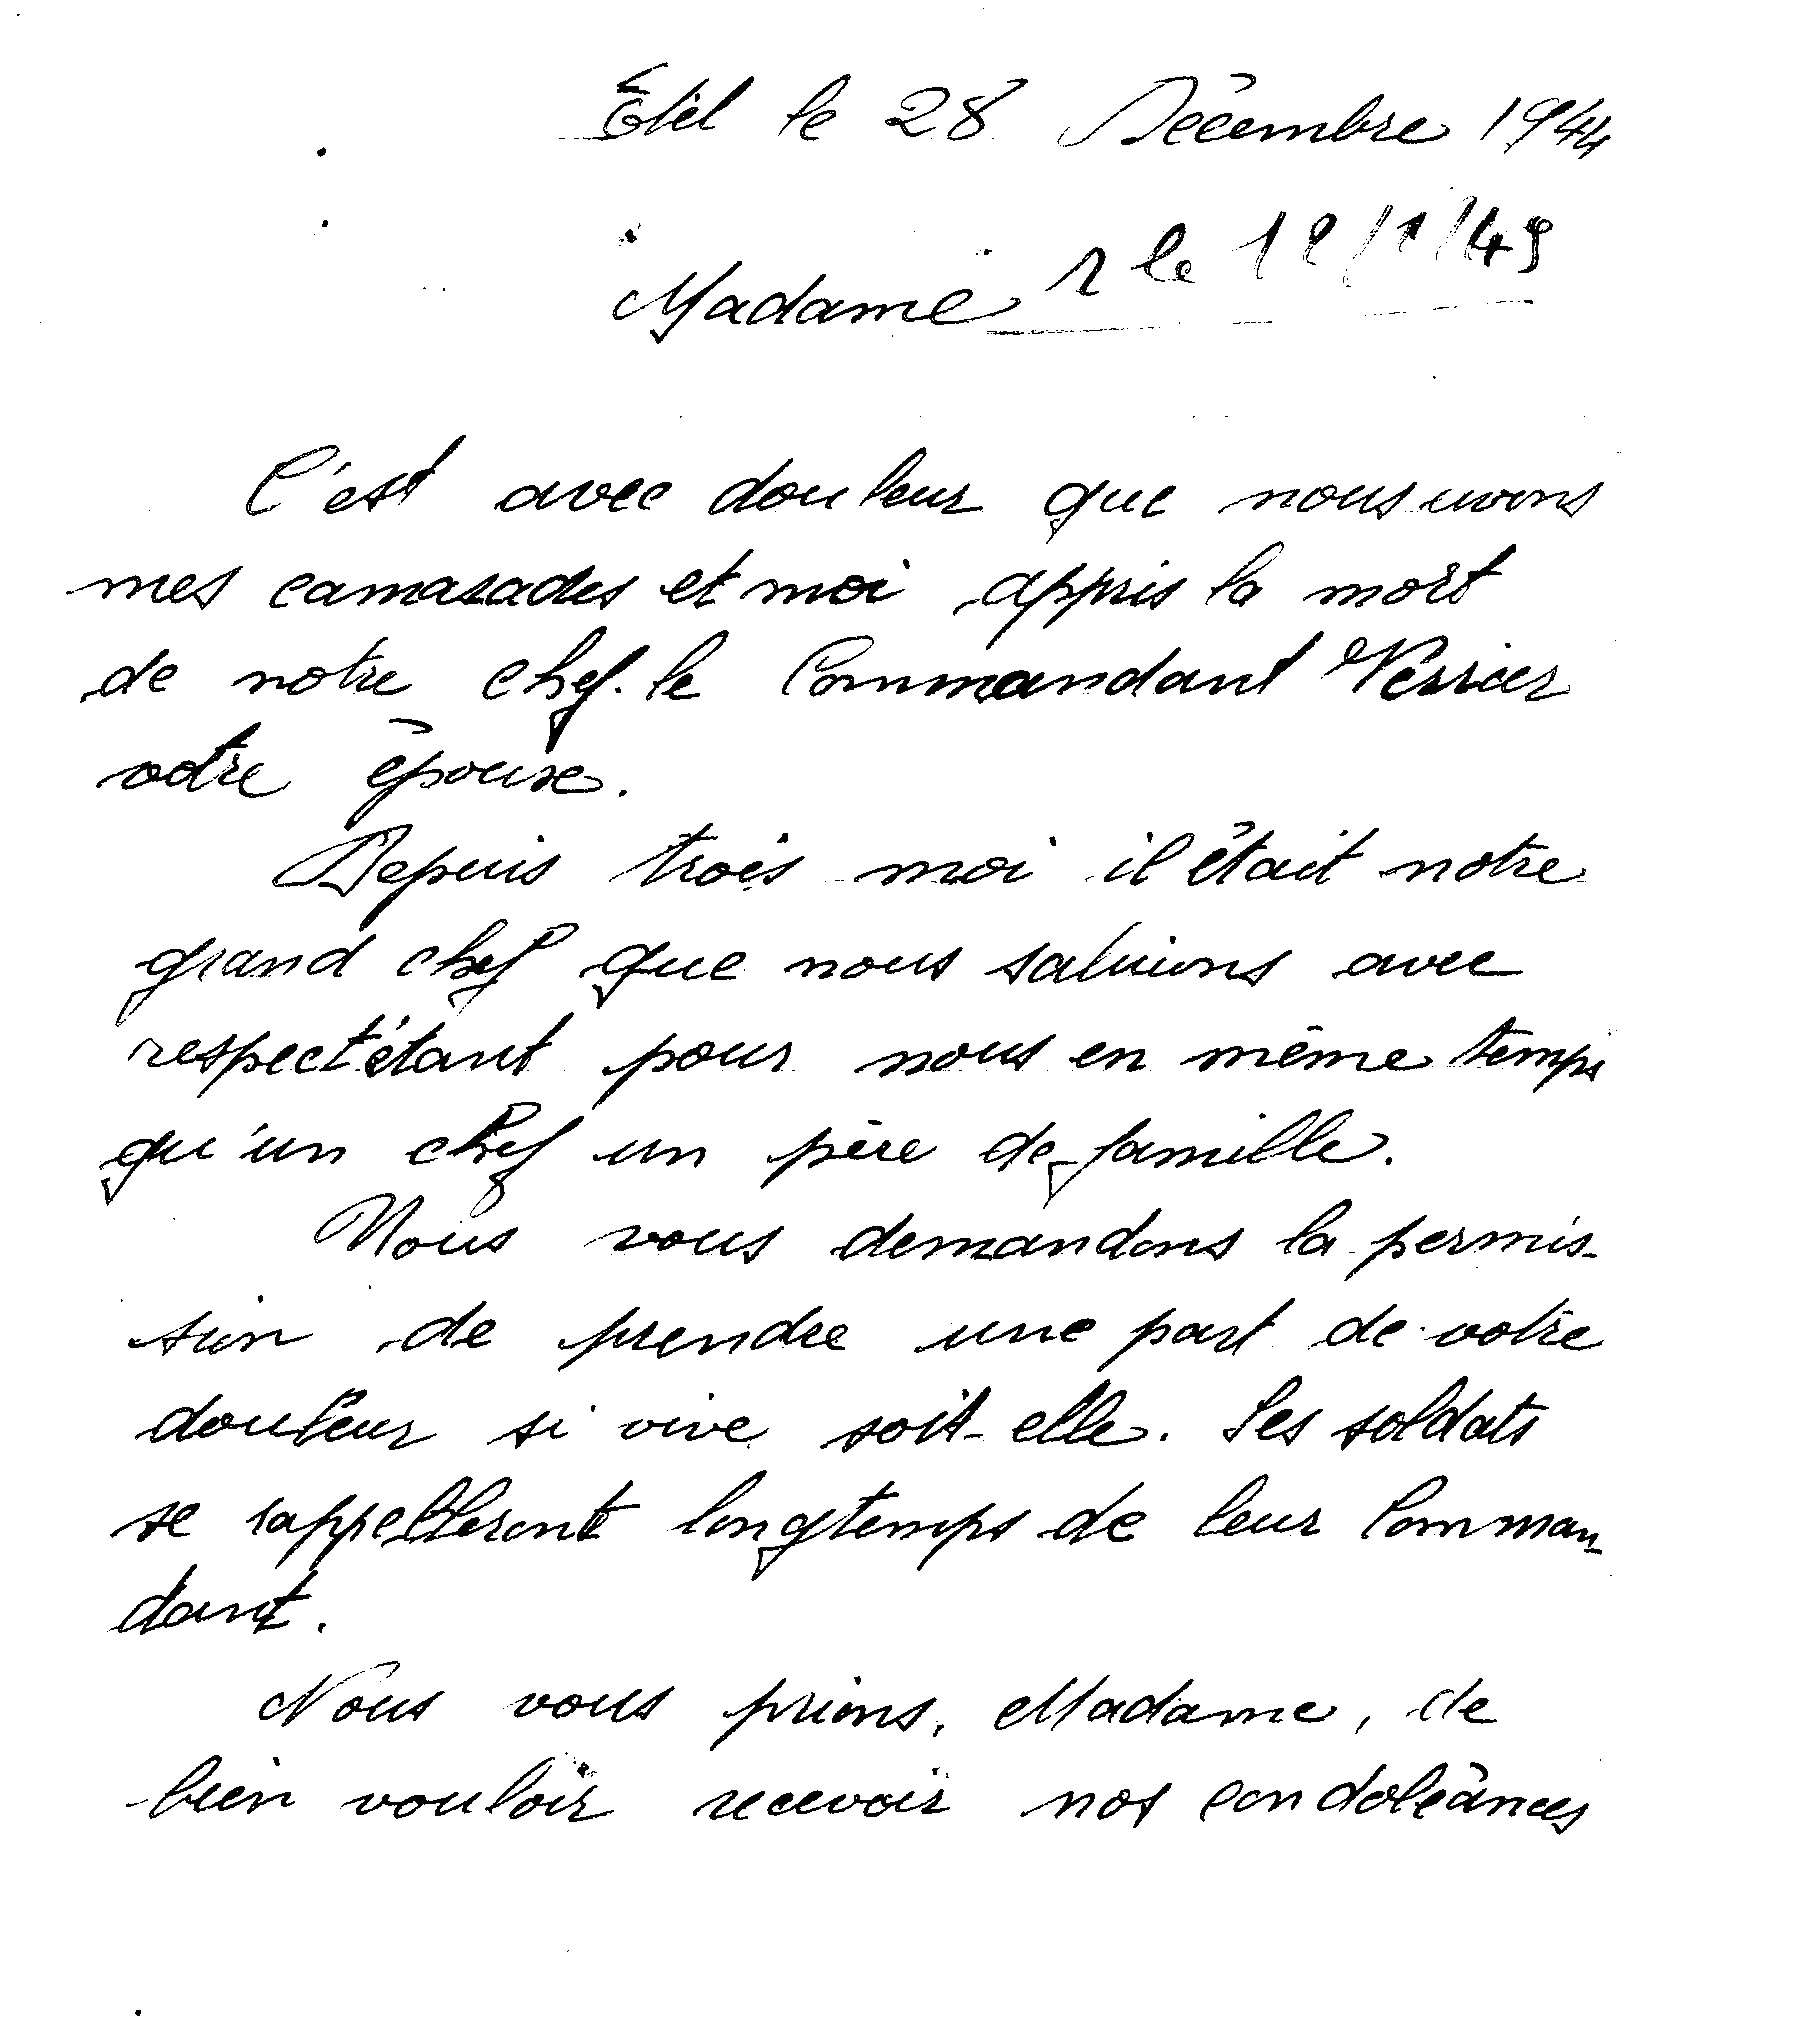 Etel le 28 Décembre 1944
Madame
le
C'est avec douleur que nous avons
mes camarades et moi appris la mort
de notre chef le Commandant Verrier
votre épouse.
Depuis trois moi il était notre
grand chef que nous saluions avec
respect étant pour nous en même temps
qu'un chef un père de famille.
Nous vous demandons la permis-
sion de prendre une part de votre
douleur si vive soit-elle. Ses soldats
se rappelleront longtemps de leur Comman-
dant.
Nous vous prions, Madame, de
bien vouloir recevoir nos condoléances